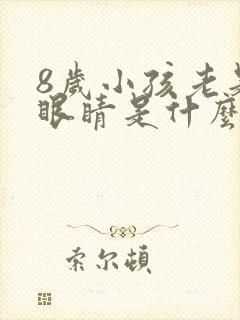 8歲小孩老是
眼睛是什麼
索尔頓